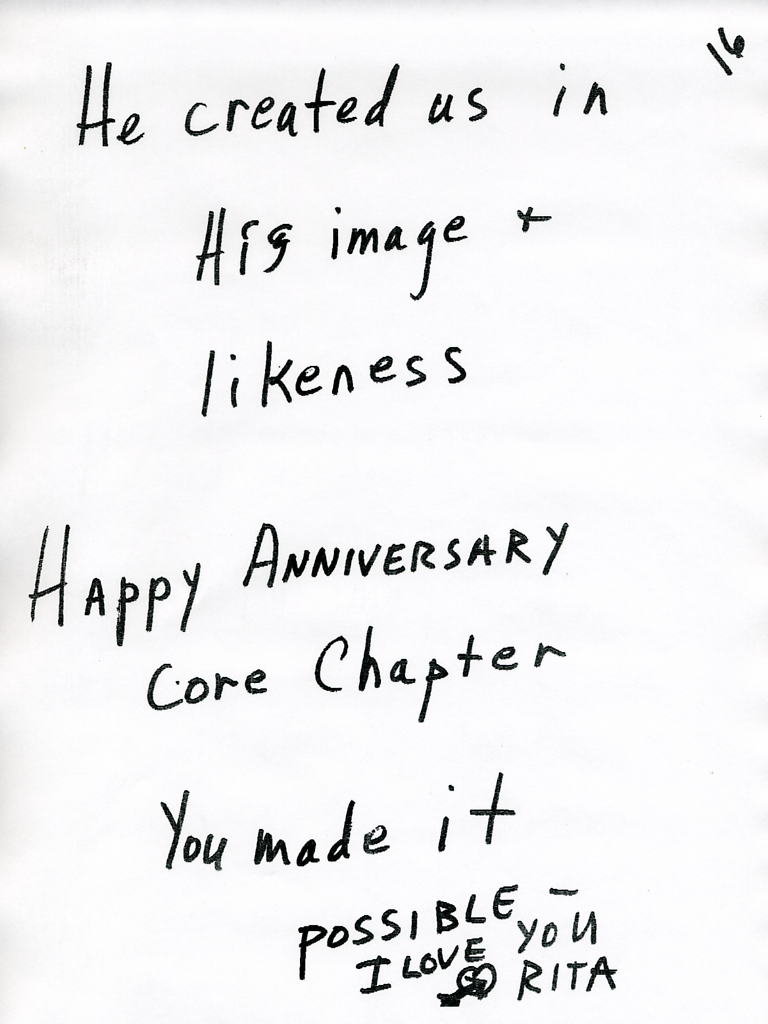 16
He created us in
His image +
likeness
HAPPY ANNIVERSARY
Core Chapter
You made it
POSSIBLE –
I LOVE YOU
RITA